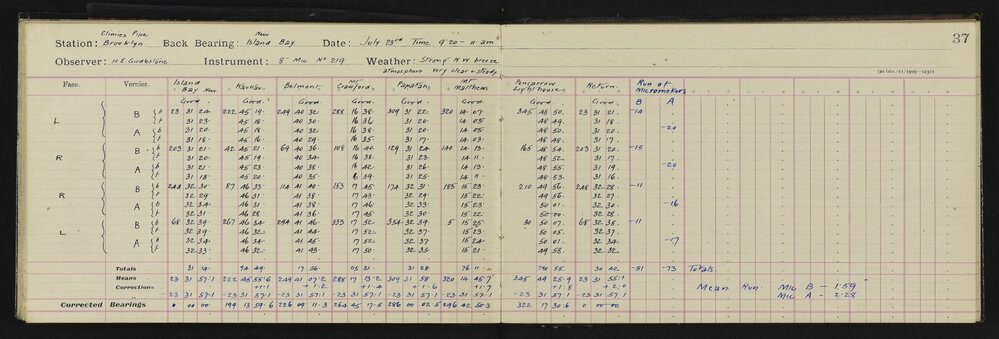 37
Climies Pipe New
Station: Brooklyn Back Bearing: Island Bay Date: July 23rd Time 9·20 - 11 am
Observer: H E Girdlestone Instrument: 8" Mic No 219 Weather: Strong N W breeze
atmosphere very clear & steady
Face. Vernier. Island Bay New Kaukau Belmont Mt Crawford Papatahi Mt Matthews Pencarrow Lighthouse Return Run of Micrometers
Good Good Good Good Good Good Good Good B A
L B b 23 31 24 222 45 19 249 40 32 288 16 38 309 31 22 320 14 07 345 48 50 23 31 21 -14
f 31 23 45 18 40 30 16 36 31 20 14 05 48 49 31 18
A b 31 20 45 18 40 32 16 38 31 20 14 05 48 50 31 20 -20
f 31 18 45 16 40 29 16 35 31 17 14 03 48 48 31 17
R B b 203 31 21 42 45 21 69 40 36 108 16 40 129 31 24 140 14 13 165 48 54 203 31 20 -15
f 31 20 45 19 40 34 16 38 31 23 14 11 48 52 31 17
A b 31 21 45 23 40 38 16 42 31 26 14 13 48 55 31 19 -20
f 31 18 45 20 40 35 16 39 31 25 14 13 48 53 31 16
R B b 248 32 30 87 46 33 114 41 40 153 17 45 174 32 31 185 15 23 210 49 56 248 32 28 -11
f 32 29 46 31 41 38 17 43 32 29 15 22 49 56 32 27
A b 32 34 46 31 41 38 17 46 32 33 15 23 50 01 32 30 -16
f 32 31 46 28 41 36 17 45 32 30 15 22 50 00 32 28
L B b 68 32 39 267 46 34 294 41 46 333 17 52 354 32 39 5 15 25 30 50 07 68 32 38 -11
f 32 39 46 32 41 44 17 52 32 37 15 23 50 05 32 37
A b 32 34 46 34 41 45 17 52 32 37 15 24 50 01 32 34 -17
f 32 33 46 32 41 43 17 50 32 35 15 21 49 58 32 32
Totals 31 14 94 49 17 56 115 31 31 28 76 11 790 55 30 42 -51 -73 Totals
Means 23 31 57·1 222 45 55·6 249 41 07·2 288 17 13·2 309 31 58 320 14 45·7 345 49 25·9 23 31 55·1
Corrections +1·1 +1·2 +1·4 +1·6 +1·7 +1·8 +2·0 Mean Run Mic B - 1·59
23 31 57·1 -23 31 57·1 -23 31 57·1 -23 31 57·1 -23 31 57·1 -23 31 57·1 -23 31 57·1 -23 31 57·1 Mic A - 2·28
Corrected Bearings 0 00 00 199 13 59·6 226 09 11·3 264 45 17·5 286 00 02·5 296 42 50·3 322 17 30·6 0 00 00